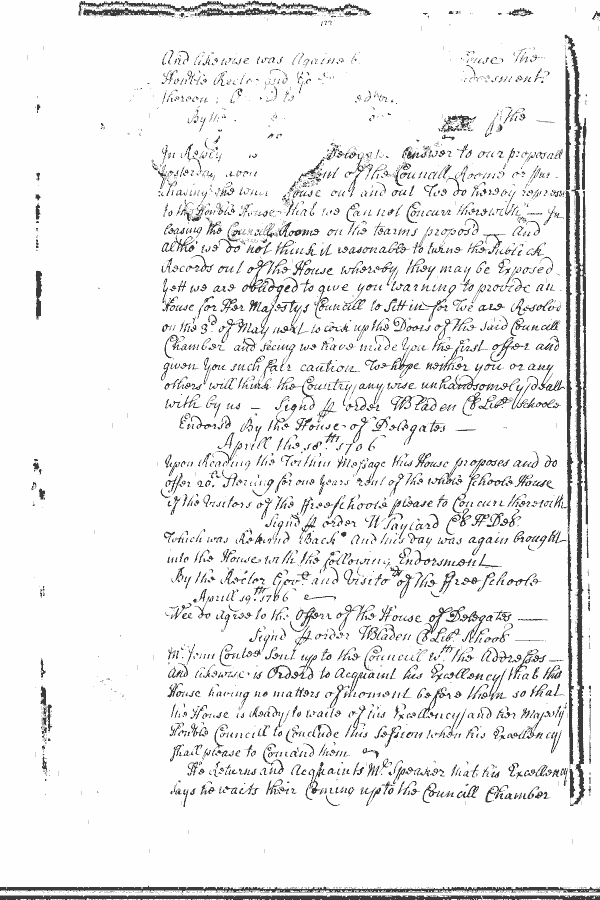 And likewise was Againe b ouse the
Honble Rector and Go dorsment
thereon:
By the the —
In Reply Delegats Answer to our proposall
Yesterday upon ent of the Councill Roome or pur-
chasing the whole house out and out We do hereby represent
to the Honble House that we Can not Concurr therewith — In
leasing the Councill Roome on the tearms proposd — And
altho we do not think it reasonable to turne the Publick
Records out of the House whereby they may be Exposed
Yett we are obledged to give you warning to provide an
House for Her Majestys Councill to sitt in for We are Resolvd
on the 3d of May next to lock up the Doors of the said Councill
Chamber and seeing we have made You the first offer and
given You such fair caution We hope neither you or any
others will think the Country any wise unhandsomely dealt
with by us — Signd p order WBladen Cl Libr schoole
Endorsd By the House of Delegates —
Aprill the 18th 1706
Upon Reading the Within Message this House proposes and do
offer 20l Sterling for one Years rent of the whole Schoole House
if the Visitors of the ffree schoole please to Concurr therewith
Signd p order W Taylard Cl H Del
Which was Retturnd Back And this day was again brought
into the House with the following Endorsment
By the Rector Govrs and Visitors of the ffree Schoole
Aprill 19th 1706
Wee do Agree to the Offerr of the House of Delegates —
Signd p order WBladen Cl Libr Schoole —
Mr John Contee Sent up to the Councill wth the Addresses —
and likewise is Orderd to Acquaint his Excellency that this
House having no matters of moment before them so that
the House is Ready to waite of his Excellency and her Majestys
Honble Councill to Conclude this Session when his Excellency
shall please to Comand them
He Returns and Acquaints Mr Speaker that his Excellency
says he waits their Coming up to the Councill Chamber